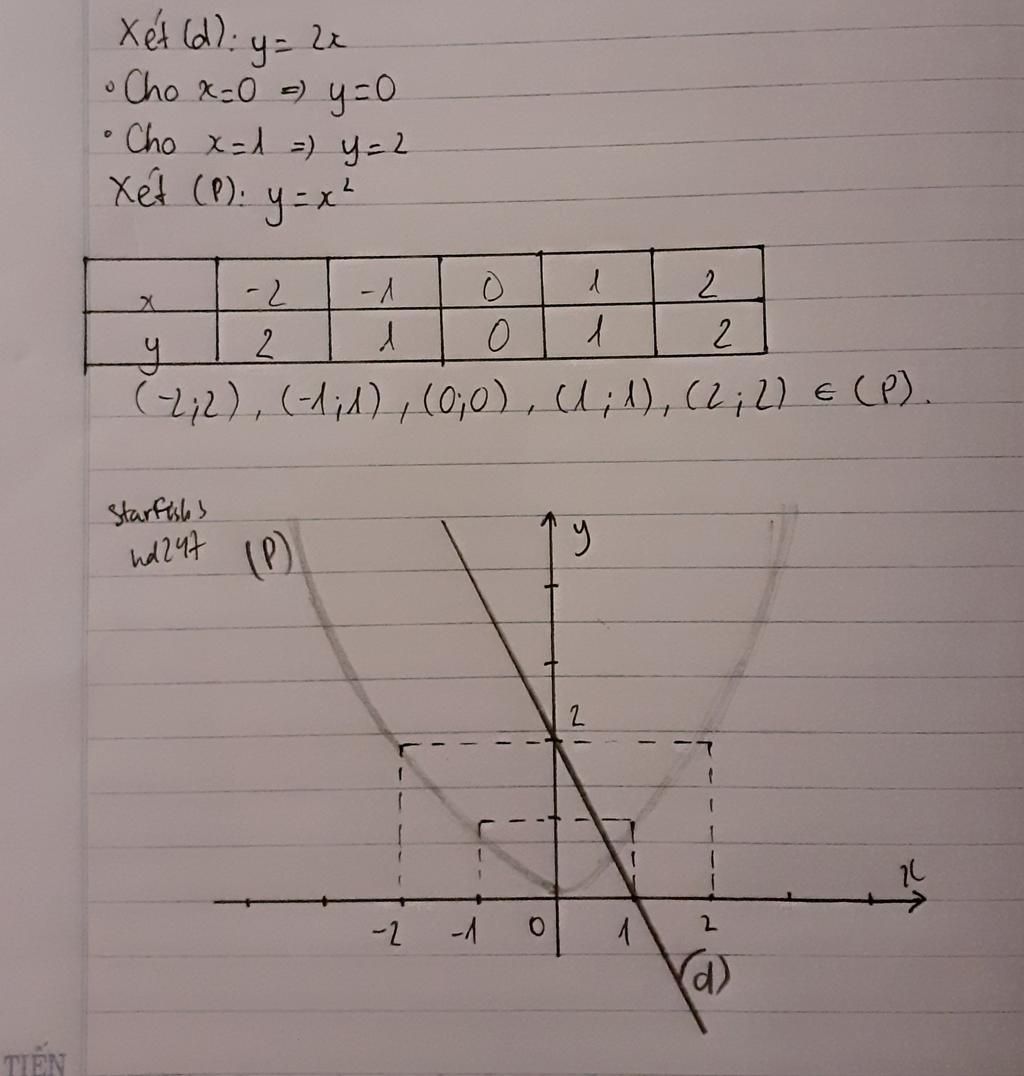 Xét (d): y = 2x
• Cho x=0 => y=0
• Cho x=1 => y=2
Xét (P): y = x²
x -2 -1 0 1 2
y 2 1 0 1 2
(-2;2), (-1;1), (0;0), (1;1), (2;2) ∈ (P).
(P)
y
2
x
-2 -1 0 1 2
(d)
TIẾN